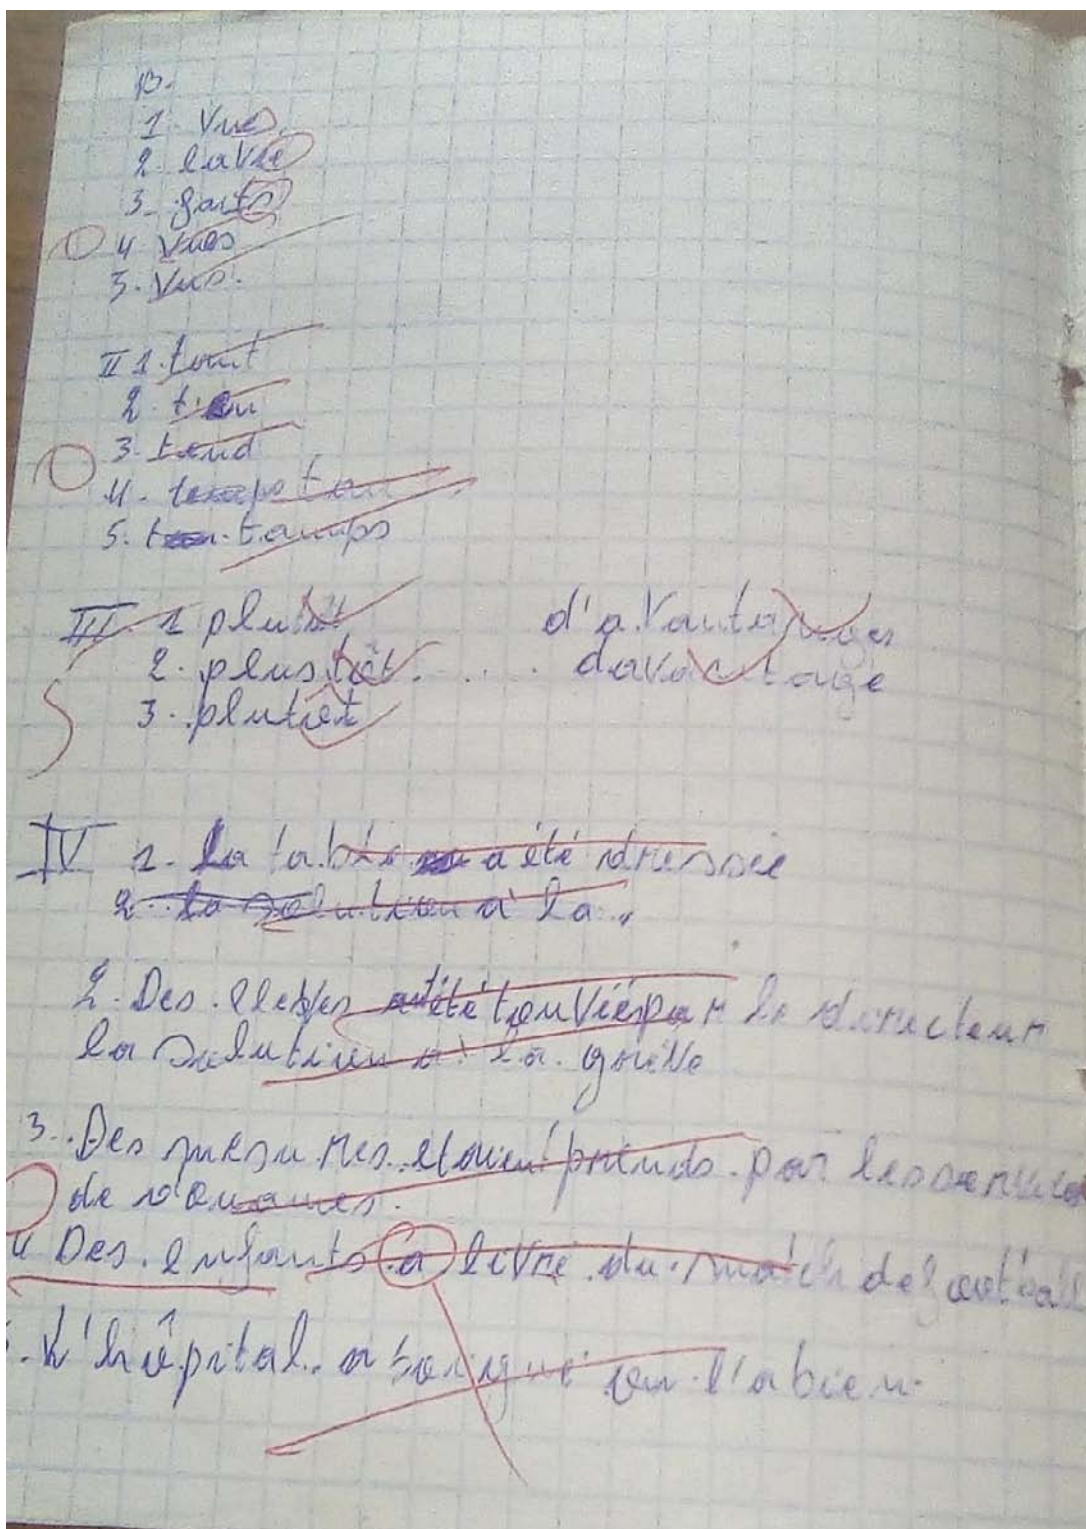 B.
1. Vues
2. lavie
3- faits
4 Vues
5. Vus.
II 1. tout
2. tien
3. tend
4. temps tan
5. tan. tamps
III. 1 plutôt d'avantages
2. plus tôt. .... davantage
3. plutôt
IV 1. La table a été dressée
2. la solution à la..
2. Des élèves été trouvée par le directeur
la solution à la grève
3. Des mesures étaient prends par les services
de douanes.
4 Des enfants a livré du match de football
. L'hôpital a soigné on l'a bien.